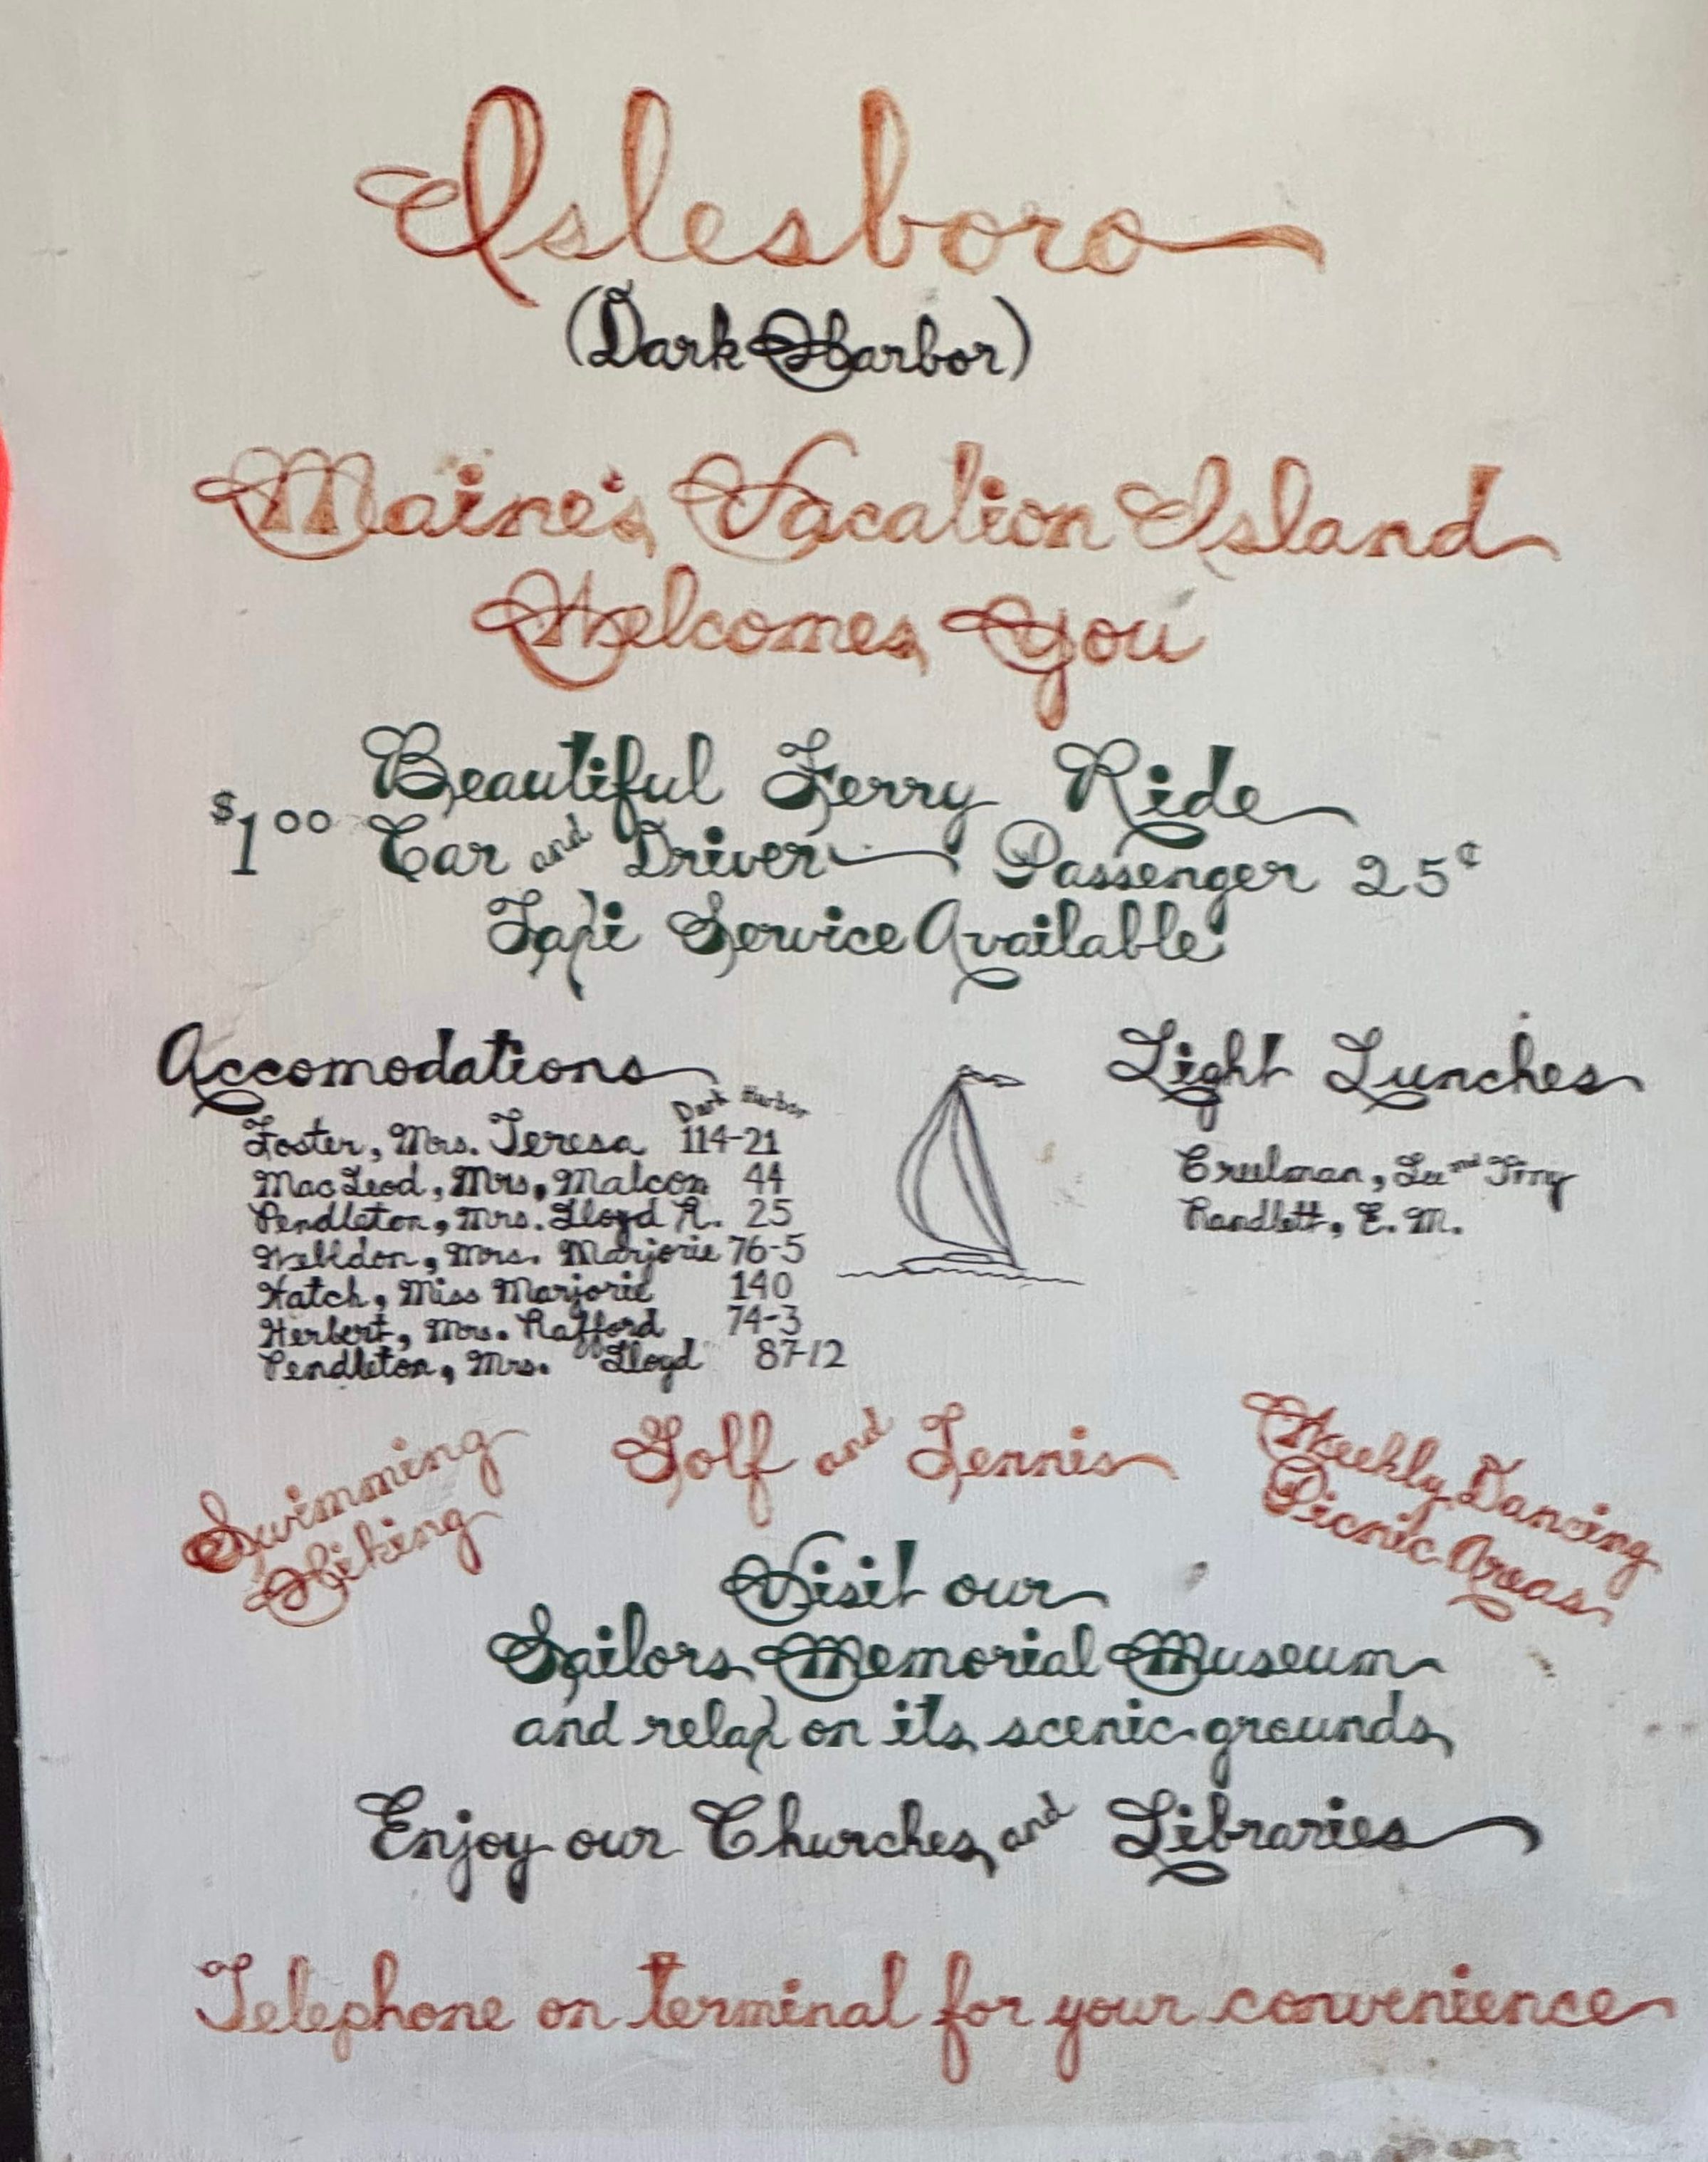 Islesboro
(Dark Harbor)
Maine's Vacation Island
Welcomes You
Beautiful Ferry Ride
$1.00 Car and Driver — Passenger 25¢
Taxi Service Available
Accomodations
Dark Harbor
Foster, Mrs. Teresa 114-21
MacLeod, Mrs. Malcom 44
Pendleton, Mrs. Lloyd R. 25
Welldon, Mrs. Marjorie 76-5
Hatch, Miss Marjorie 140
Herbert, Mrs. Rafford 74-3
Pendleton, Mrs. Lloyd 87-12
Light Lunches
Creelman, Lu and Tiny
Randlett, E. M.
Swimming
Hiking
Golf and Tennis
Weekly Dancing
Picnic Areas
Visit our
Sailors Memorial Museum
and relax on its scenic grounds
Enjoy our Churches and Libraries
Telephone on terminal for your convenience